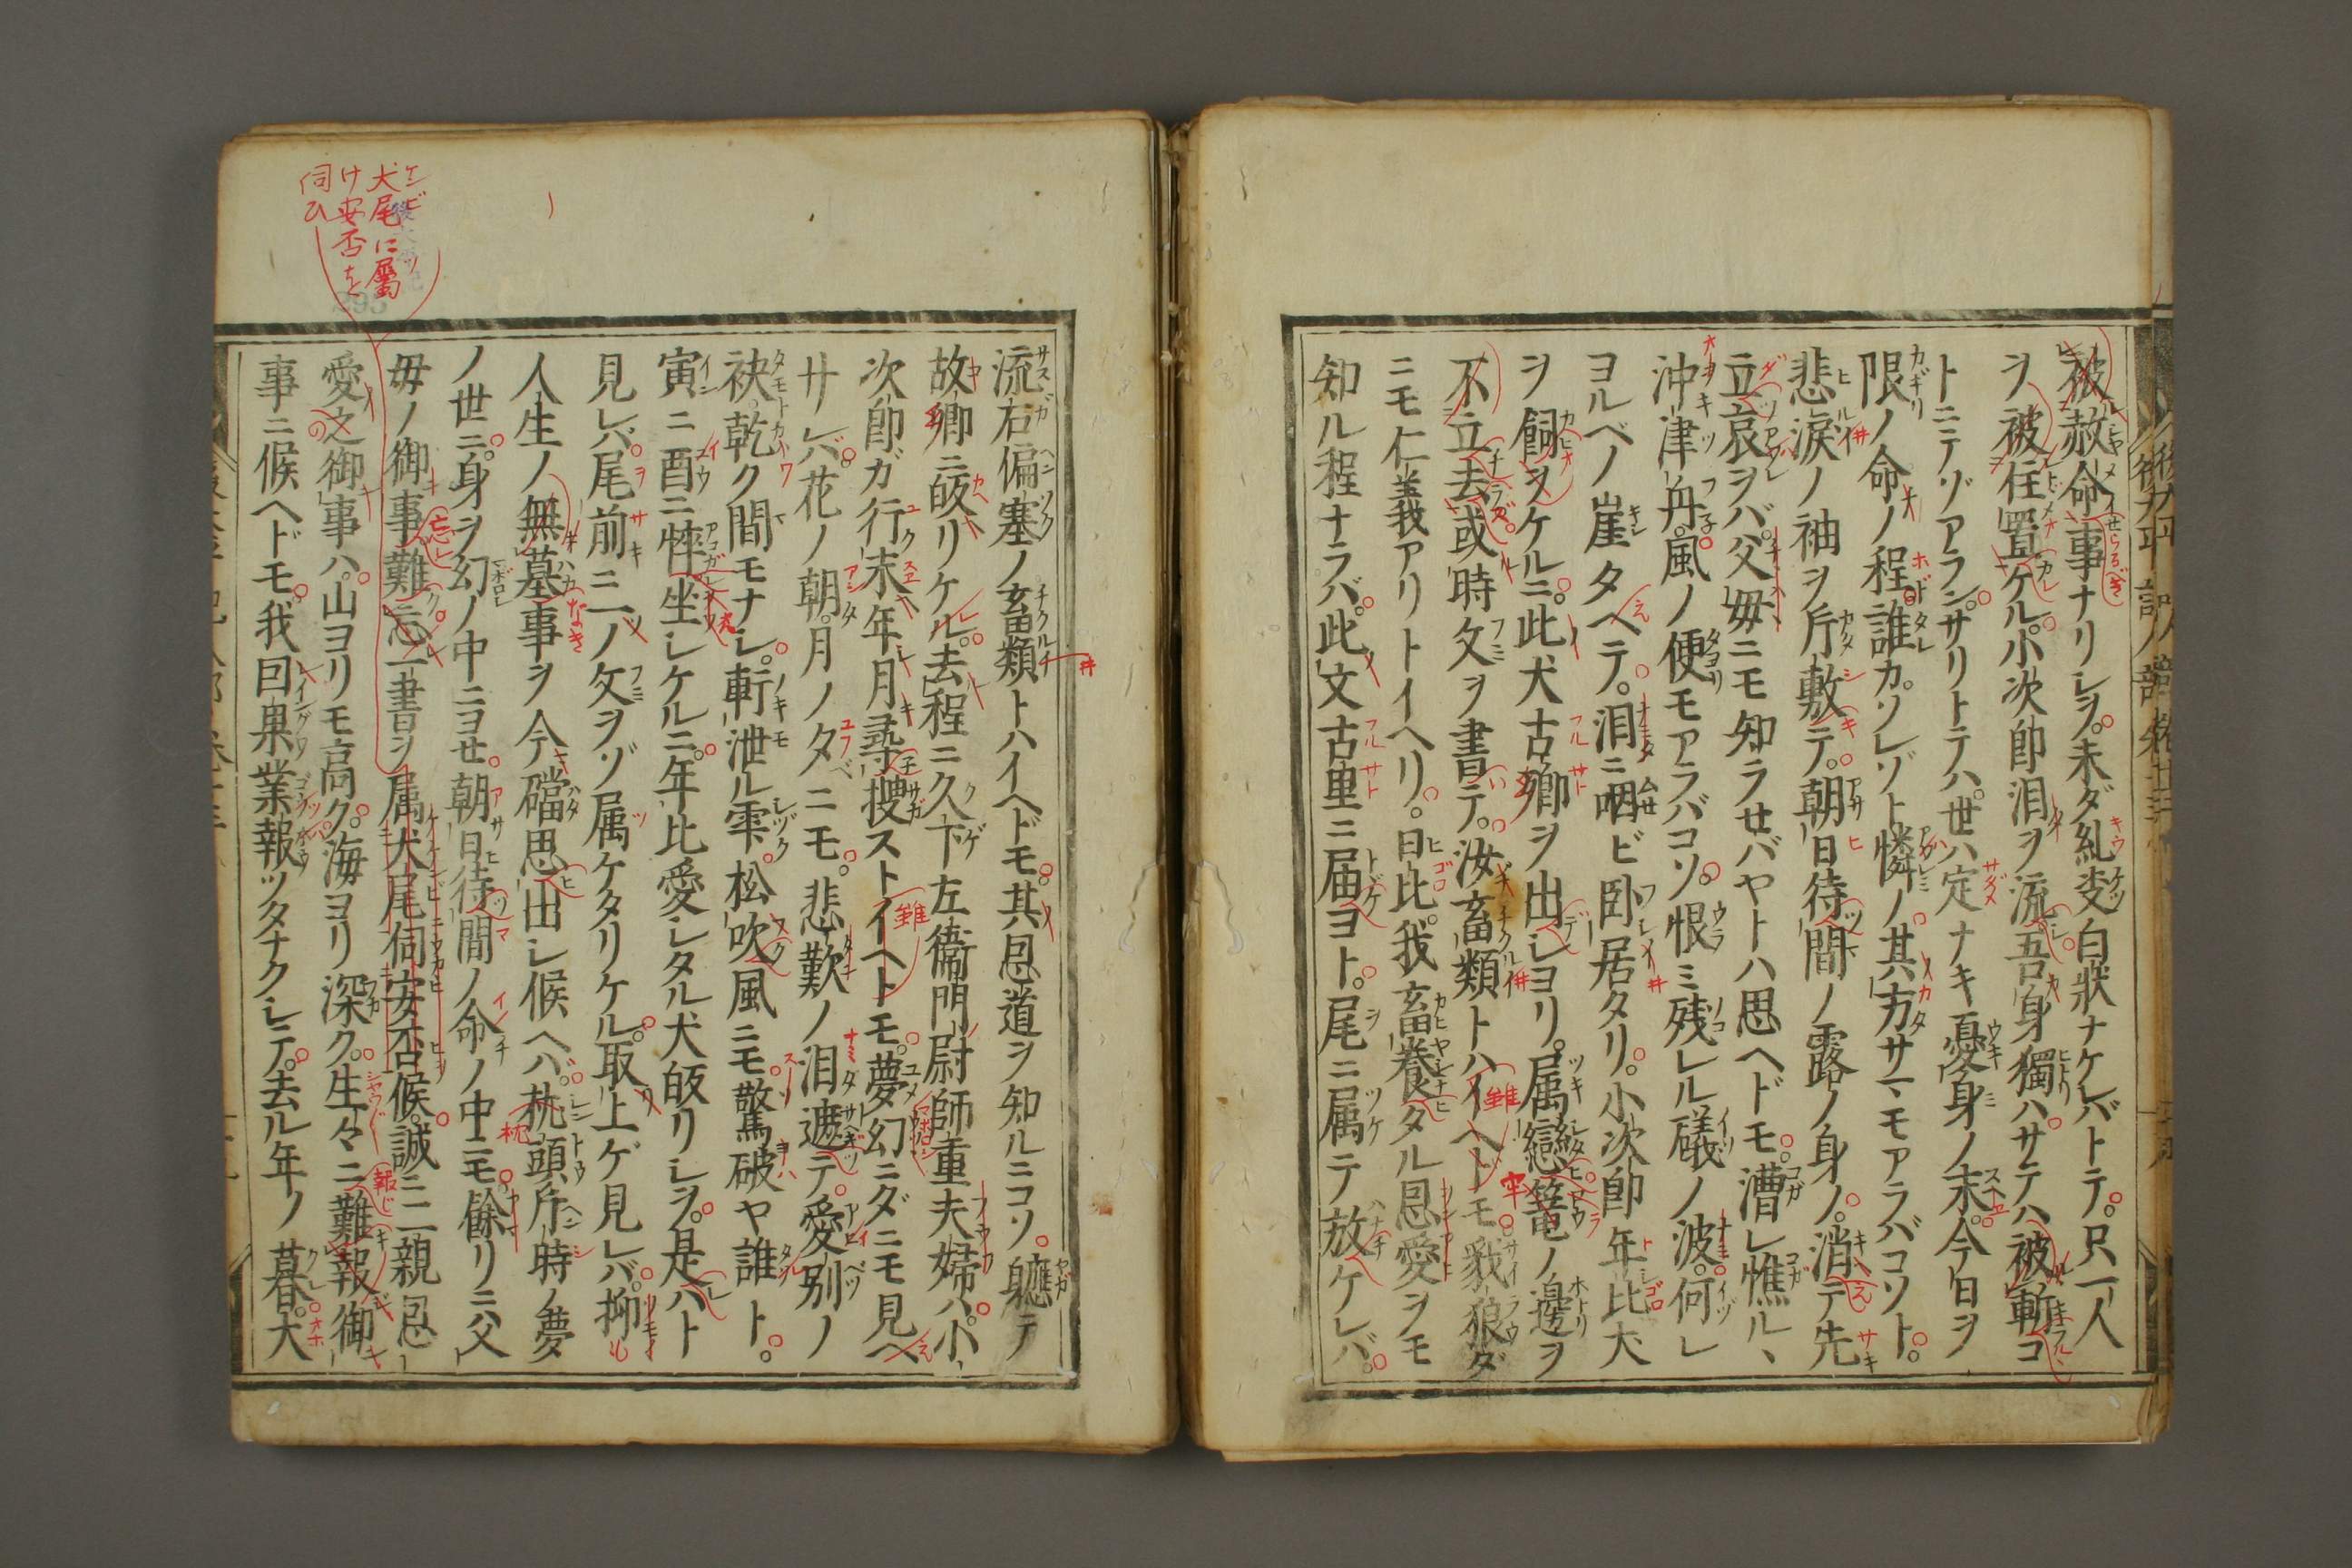 被赦命事ナリシヲ未ダ糺决白狀ナケレバトテ只一人
ヲ被任置ケル小次郎泪ヲ流シ吾身獨ハサテハ被斬コ
トニテゾアランサリトテハ世ハ定ナキ憂身ノ末今日ヲ
限ノ命ノ程誰カソレゾト憐ノ其方サマモアラバコソト
悲淚ノ袖ヲ片敷テ朝日待間ノ露ノ身ノ消テ先
立哀ヲバ父毋ニモ知ラセバヤトハ思ヘドモ漕レ憔ル、
沖津舟風ノ便モアラバコソ恨ミ残レル礒ノ波何レ
ヨルベノ崖タヘテ泪ニ咽ビ卧居タリ小次郎年比犬
ヲ飼ヲケルニ此犬古鄉ヲ出シヨリ属戀篭ノ邊ヲ
不立去或時文ヲ書テ汝畜類トハイヘトモ豺狼ダ
ニモ仁義アリトイヘリ日比我畜養タル恩愛ヲモ
知ル程ナラバ此文古里ニ届ヨト尾ニ属テ放ケレバ
流石偏塞ノ畜類トハイヘドモ其恩道ヲ知ルニコソ軈テ
故鄉ニ皈リケル去程ニ久下左衛門尉師重夫婦ハ小
次郎ガ行末年月尋搜ストイヘトモ夢幻ニダニモ見ヘ
サレバ花ノ朝月ノ夕ベニモ悲歎ノ泪遮テ愛別ノ
袂乾ク間モナシ軒泄ル雫松吹風ニモ驚破ヤ誰ト
寅ニ酉ニ悴坐シケルニ年比愛シタル犬皈リシヲ是ハト
見レバ尾前ニ一ノ文ヲゾ属ケタリケル取上ゲ見レバ抑
人生ノ無墓事ヲ今礑思出シ候ヘバ枕頭片時ノ夢
ノ世ニ身ヲ幻ノ中ニヨセ朝日待間ノ命ノ中ニモ餘リニ父
毋ノ御事難忘一書ヲ属犬尾伺安否候誠ニ二親恩
愛之御事ハ山ヨリモ高ク海ヨリ深ク生々ニ難報御
事ニ候ヘドモ我因果業報ツタナクシテ去ル年ノ暮大
犬尾に屬
け安否を
伺ひ